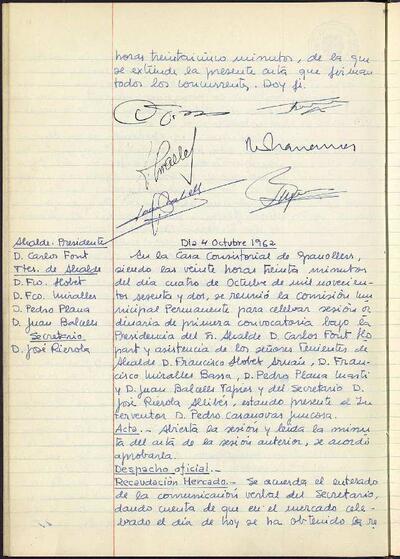 horas treintaicinco minutos, de la que
se extiende la presente acta que firman
todos los concurrentes. Doy fe.
Alcalde-Presidente
D. Carlos Font
Ttes. de Alcalde
D. Fco. Llobet
D. Fco. Miralles
D. Pedro Plana
D. Juan Balcells
Secretario
D. José Rierola
Día 4 Octubre 1962
En la Casa Consistorial de Granollers,
siendo las veinte horas treinta minutos
del día cuatro de Octubre de mil novecien-
tos sesenta y dos, se reunió la Comisión Mu-
nicipal Permanente para celebrar sesión or-
dinaria de primera convocatoria bajo la
Presidencia del Sr. Alcalde D. Carlos Font
y asistencia de los señores Tenientes de
Alcalde D. Francisco Llobet Arnán, D. Fran-
cisco Miralles Bassa, D. Pedro Plana
y D. Juan Balcells y del Secretario D.
José Rierola, estando presente el In-
terventor D. Pedro Casanovas Juncosa.
Acta.- Abierta la sesión y leída la minu-
ta del acta de la sesión anterior, se acordó
aprobarla.
Despacho oficial.-
Recaudación Mercado.- Se acuerda el enterado
de la comunicación verbal del Secretario,
dando cuenta de que en el mercado cele-
brado el día de hoy se ha obtenido la re